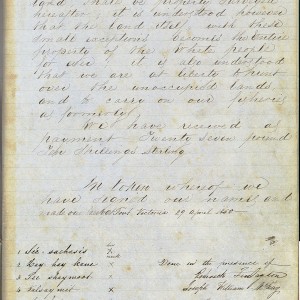 land shall be properly surveyed
hereafter; it is understood however
that the land itself, with these
small exceptions becomes the Entire
property of the White people
for ever; it is also understood
that we are at liberty to hunt
over the unoccupied lands,
and to carry on our fisheries
as formerly.
We have received as
payment Twenty seven pound
Ten Shillings Sterling
In token whereof we
have signed our names and
Fort Victoria 29 April 1850
1 See-sachasis x
mark
2 Hay hay kane x
3 Pee shaymoot x
4 Kalsaymet x
Done in the presence of
Joseph William